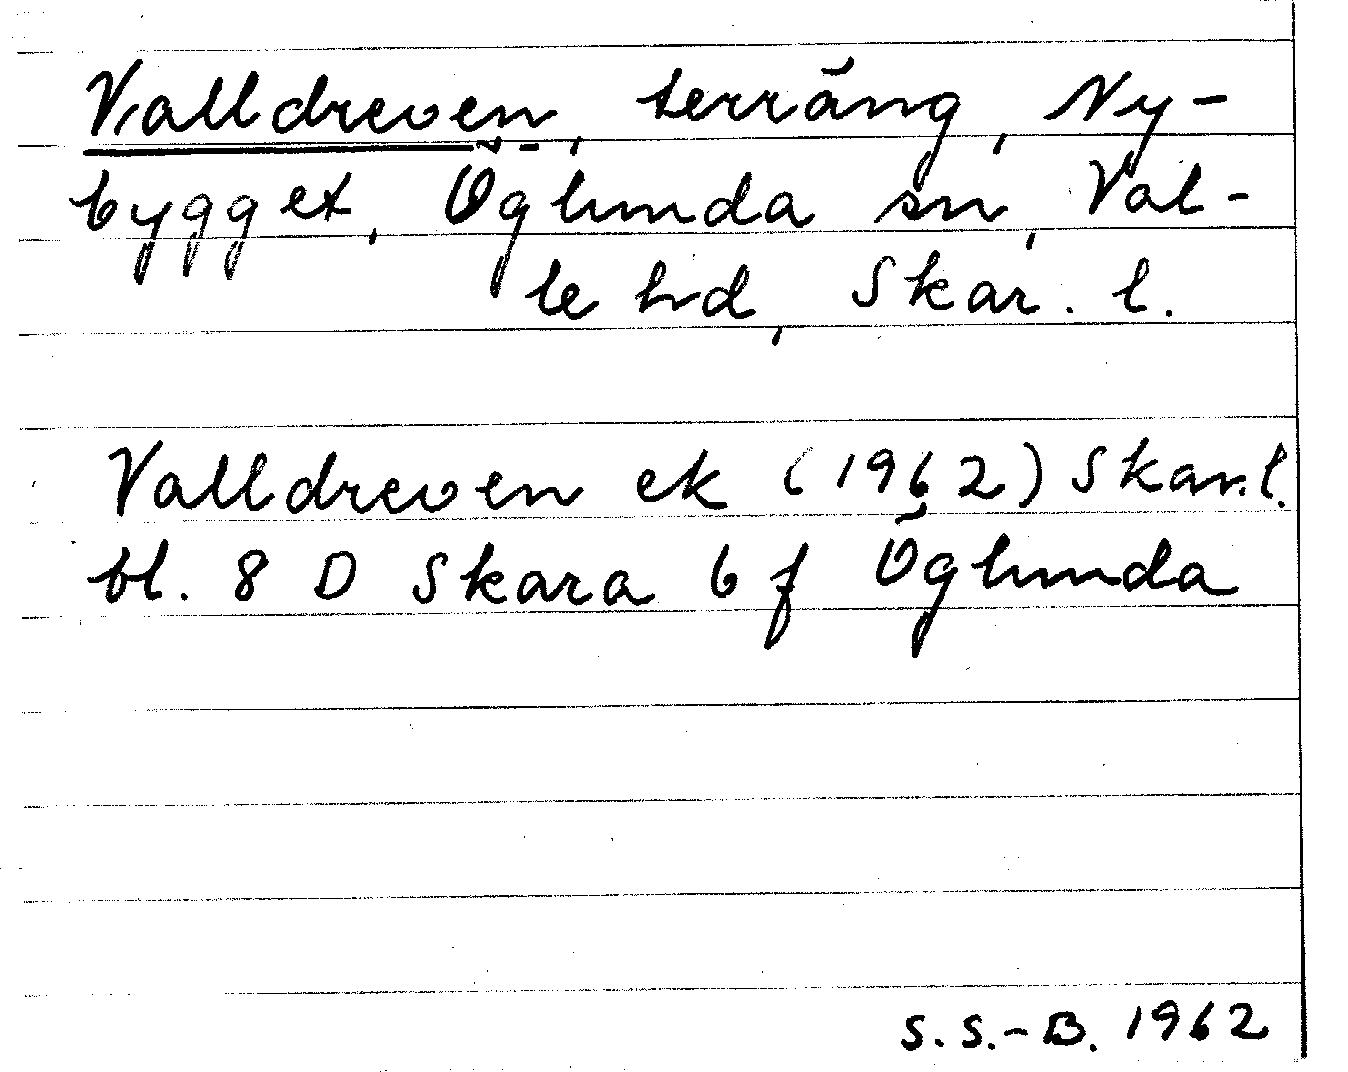 Valldreven, terräng, Ny-
bygget, Öglunda sn, Val-
le hd, Skar. l.
Valldreven ek (1962) Skar.l.
bl. 8 D Skara 6 f Öglunda
S.S.-B. 1962